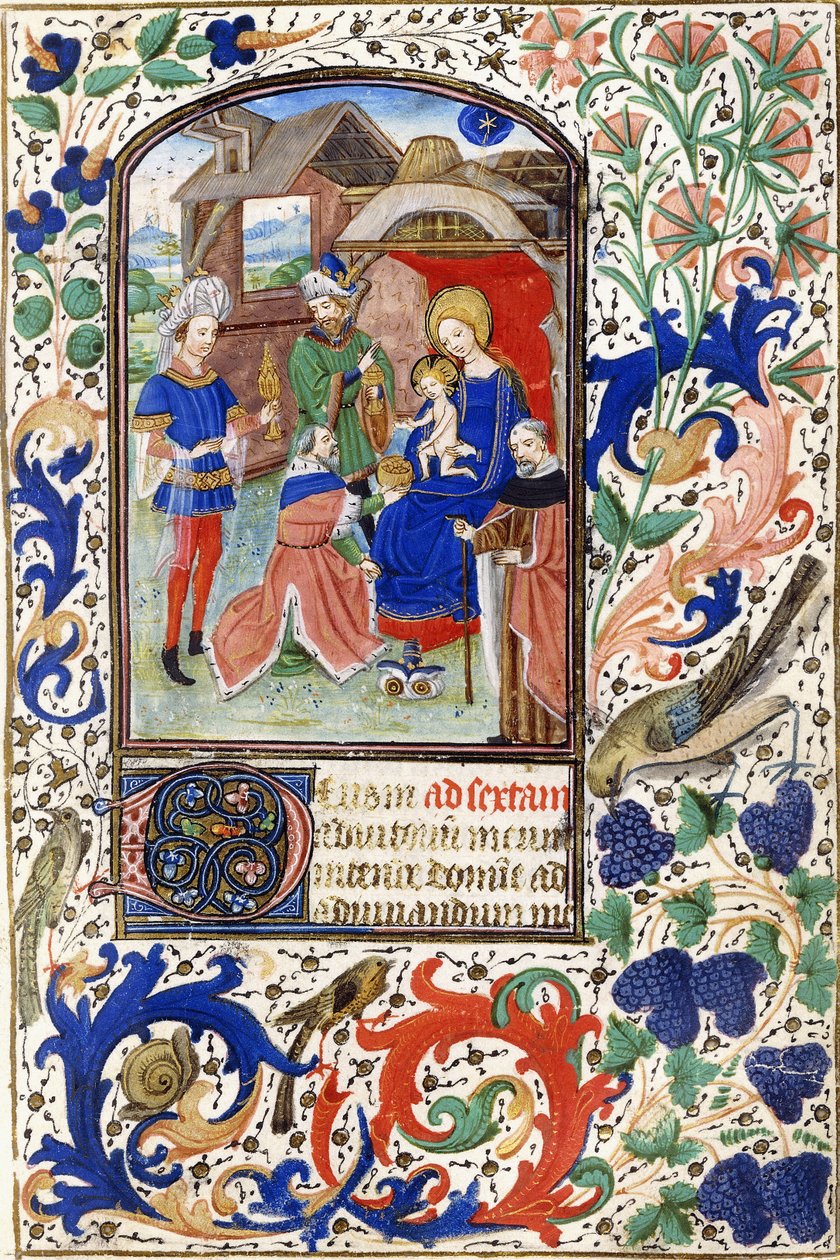 Deus in ad sextam
adiutoriū meum
intende domīe ad
adiuuandum me